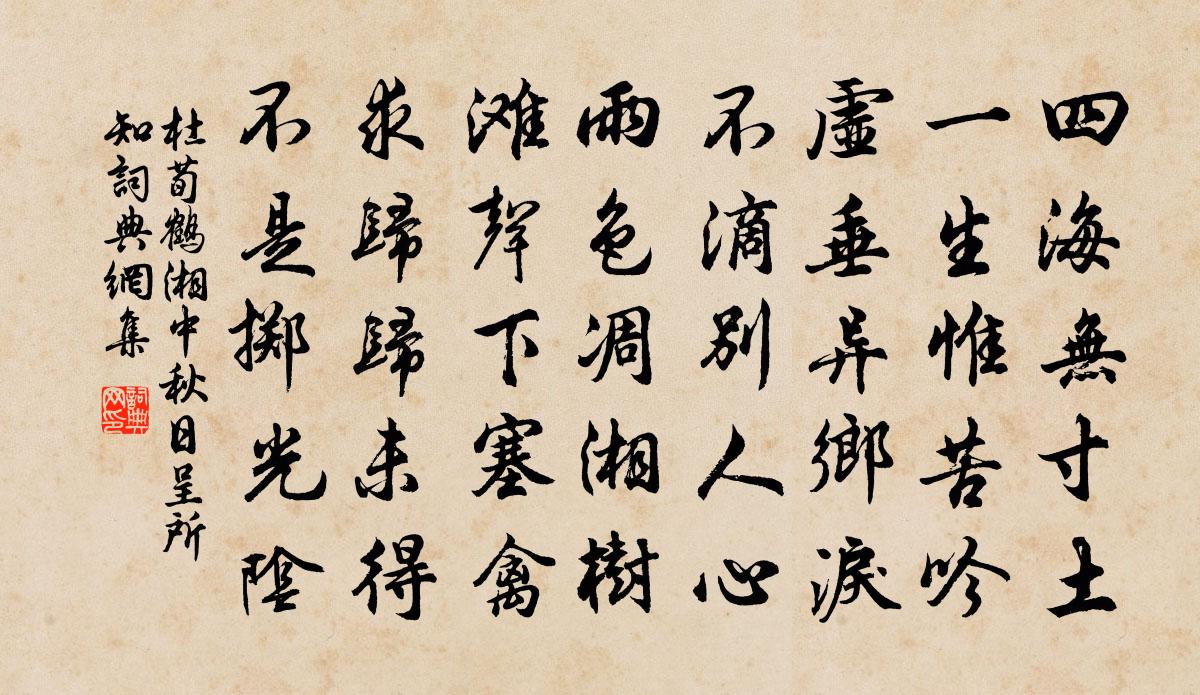 四海無寸土
一生惟苦吟
虛垂异鄉淚
不滴別人心
雨色凋湘樹
滩聲下塞禽
求歸歸未得
不是擲光陰
杜荀鶴湘中秋日呈所
知詞典網集
詞典
网印